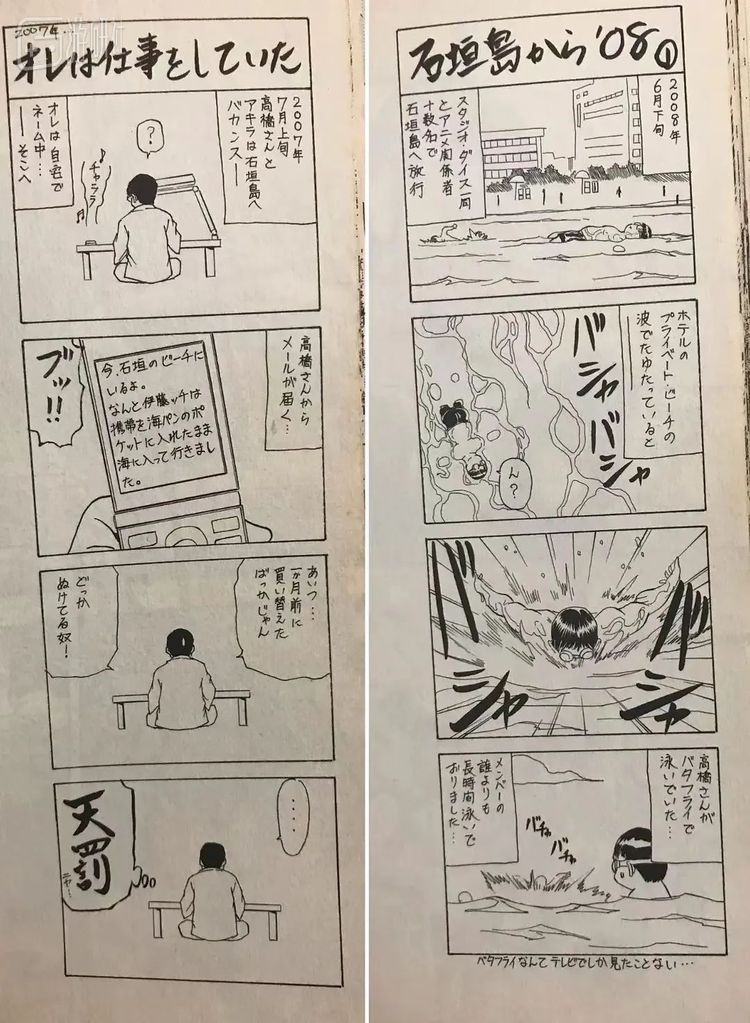 石垣島から'08①
2008年
6月下旬
スタジオ・ダイス一同
とアニメ関係者
十数名で
石垣島へ旅行
ホテルの
プライベート・ビーチの
波でたゆたっていると
バシャバシャ
ん?
バシャ
バシャ
高橋さんが
バタフライで
泳いでいた…
メンバーの
誰よりも
長時間泳いで
おりました…
バチャ
バチャ
バタフライなんてテレビでしか見たことない…
2007年…
オレは仕事をしていた
2007年
7月上旬
高橋さんと
アキラは石垣島へ
バカンス──
?
♪チャララ♬
オレは自宅で
ネーム中…
──そこへ
高橋さんから
メールが届く…
今、石垣のビーチに
いるよ。
なんと伊藤ッチは
携帯を海パンのポ
ケットに入れたまま
海に入って行きまし
た。
ブッ!!
あいつ…
一か月前に
買い替えた
ばっかじゃん
どっか
ぬけてる奴!
・・・・
天罰
ニヤ…